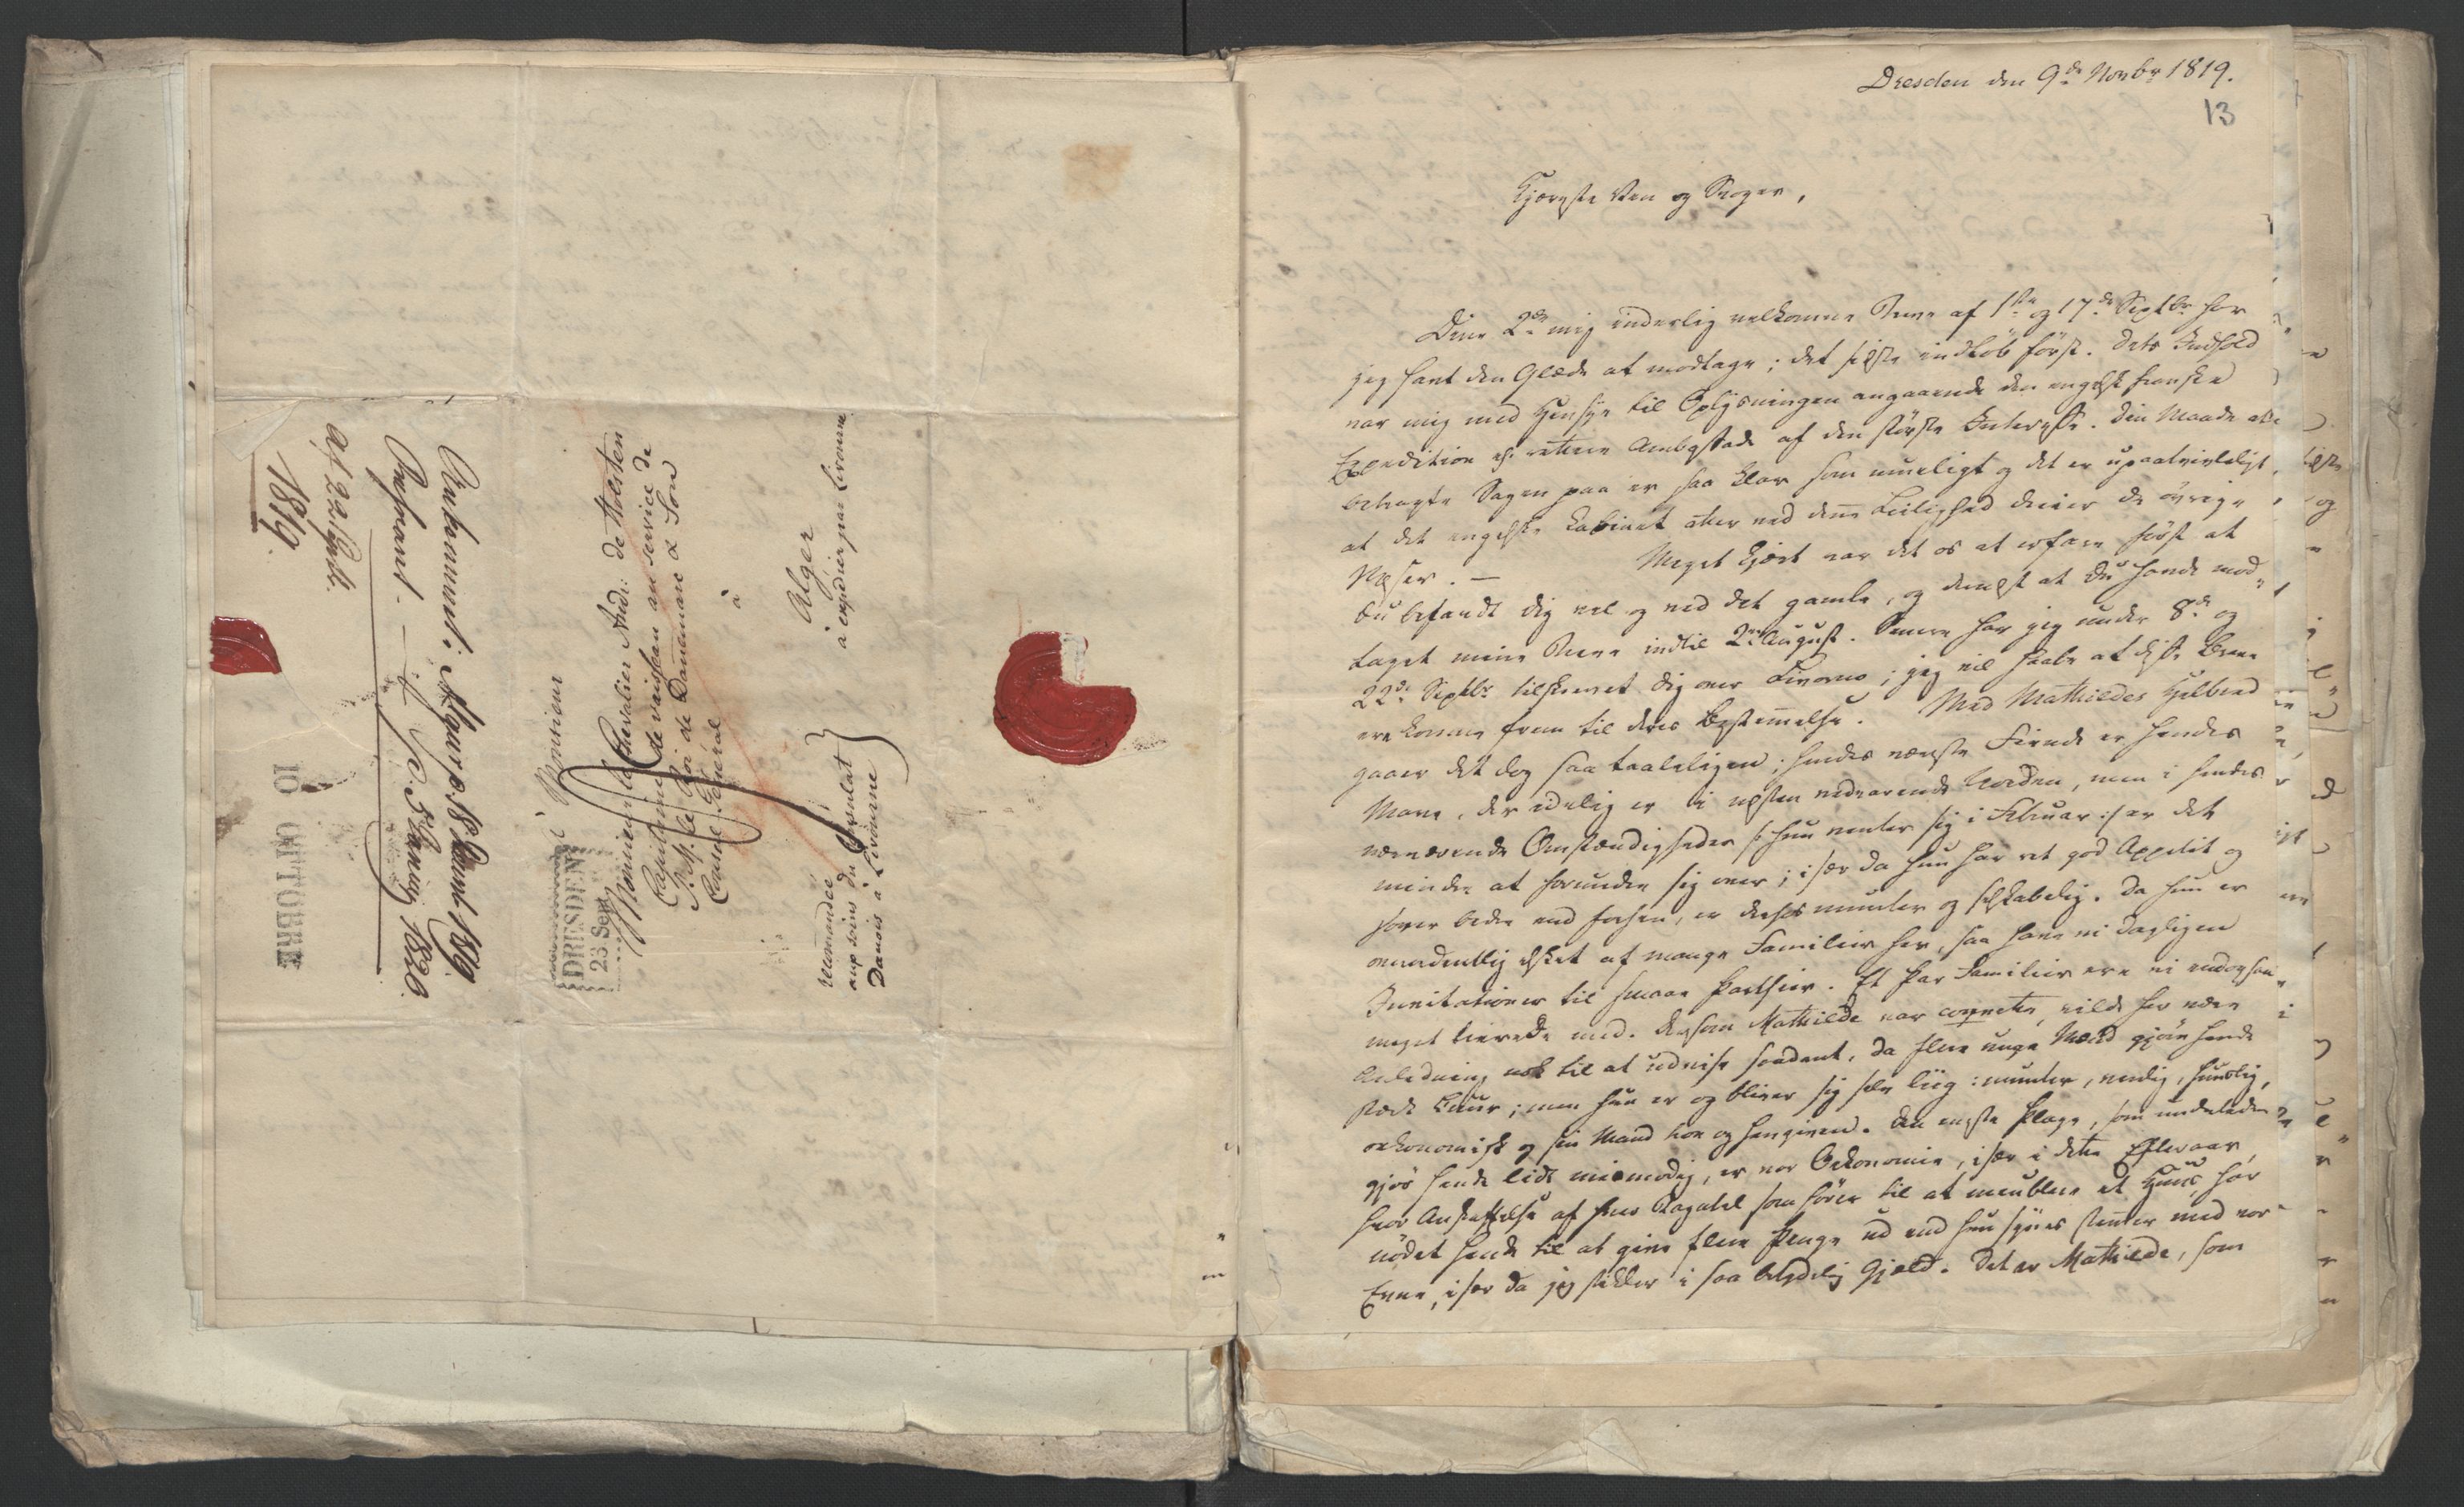 af 22 Septb.
1819.
Ankommet: Algier d. 18
Besvaret. — d. 5 1820.
10 OTTOBRE
DRESDEN
23 Sept.
à Monsieur
Monsieur le Chevalier And: de Holsten
Capitaine de vaisseau au service de
S. M. le Roi de Danemarc & Son
Consul Général
à
Alger
à expédier par Livourne
recommandée
aux soins du Consulat
Danois à Livourne
Dresden den 9de Novbr 1819.
13
Kjæreste Ven og Svoger,
Dine 2de mig inderlig velkomne Breve af 1ste og 17de Septbr har
jeg havt den Glæde at modtage; det sidste indløb først. Dets Indhold
var mig med Hensyn til Oplysningen angaaende den engelsk franske
Expedition el. rettere Ambassade af den største Interesse. Din Maade at
betragte Sagen paa er saa klar som mueligt og det er upaatvivleligt,
at det engelske Cabinet atter ved denne Leilighed dreier de øvrige
Næser. — Meget kjært var det os at erfare først at
Du befandt Dig vel og ved det gamle, og dernæst at Du havde mod-
taget mine Breve indtil 2den August. Senere har jeg under 8de og
22de Septbr tilskrevet Dig over Livorno; jeg vil haabe at disse Breve
ere komne frem til deres Bestemmelse. Med Mathildes Helbred
gaaer det dog saa taaleligen; hendes værste Fiende er hendes
Mave, der idelig er i næsten vedvarende Uorden, men i hendes
nærværende Omstændigheder /: hun venter sig i Februar :/ er det
mindre at forundre sig over; især da hun har ret god Appetit og
sover bedre end forhen, er deels munter og selskabelig. Da hun er
overordentlig elsket af mange Familier her, saa have vi dagligen
Invitationer til smaae Parthier. Et Par Familier ere vi endog saa
meget lierede med. Dersom Mathilde var coquette, vilde her være
Anledning nok til at udvise saadant, da flere unge Mænd gjøre hende
stærk Cuur; men hun er og bliver sig selv liig: munter, venlig, huuslig,
oekonomisk og sin Mand tro og hengiven. Den eneste Plage, som undertiden
gjør hende lidt mismodig, er vor Oekonomie, især i dette Efteraar,
hvor Anskaffelse af hver Bagatel som hører til at meublere et Huus, har
nødet hende til at give flere Penge ud end hun synes stemmer med vor
Evne, især da jeg stikker i saa betydelig Gjæld. Det er Mathilde, som